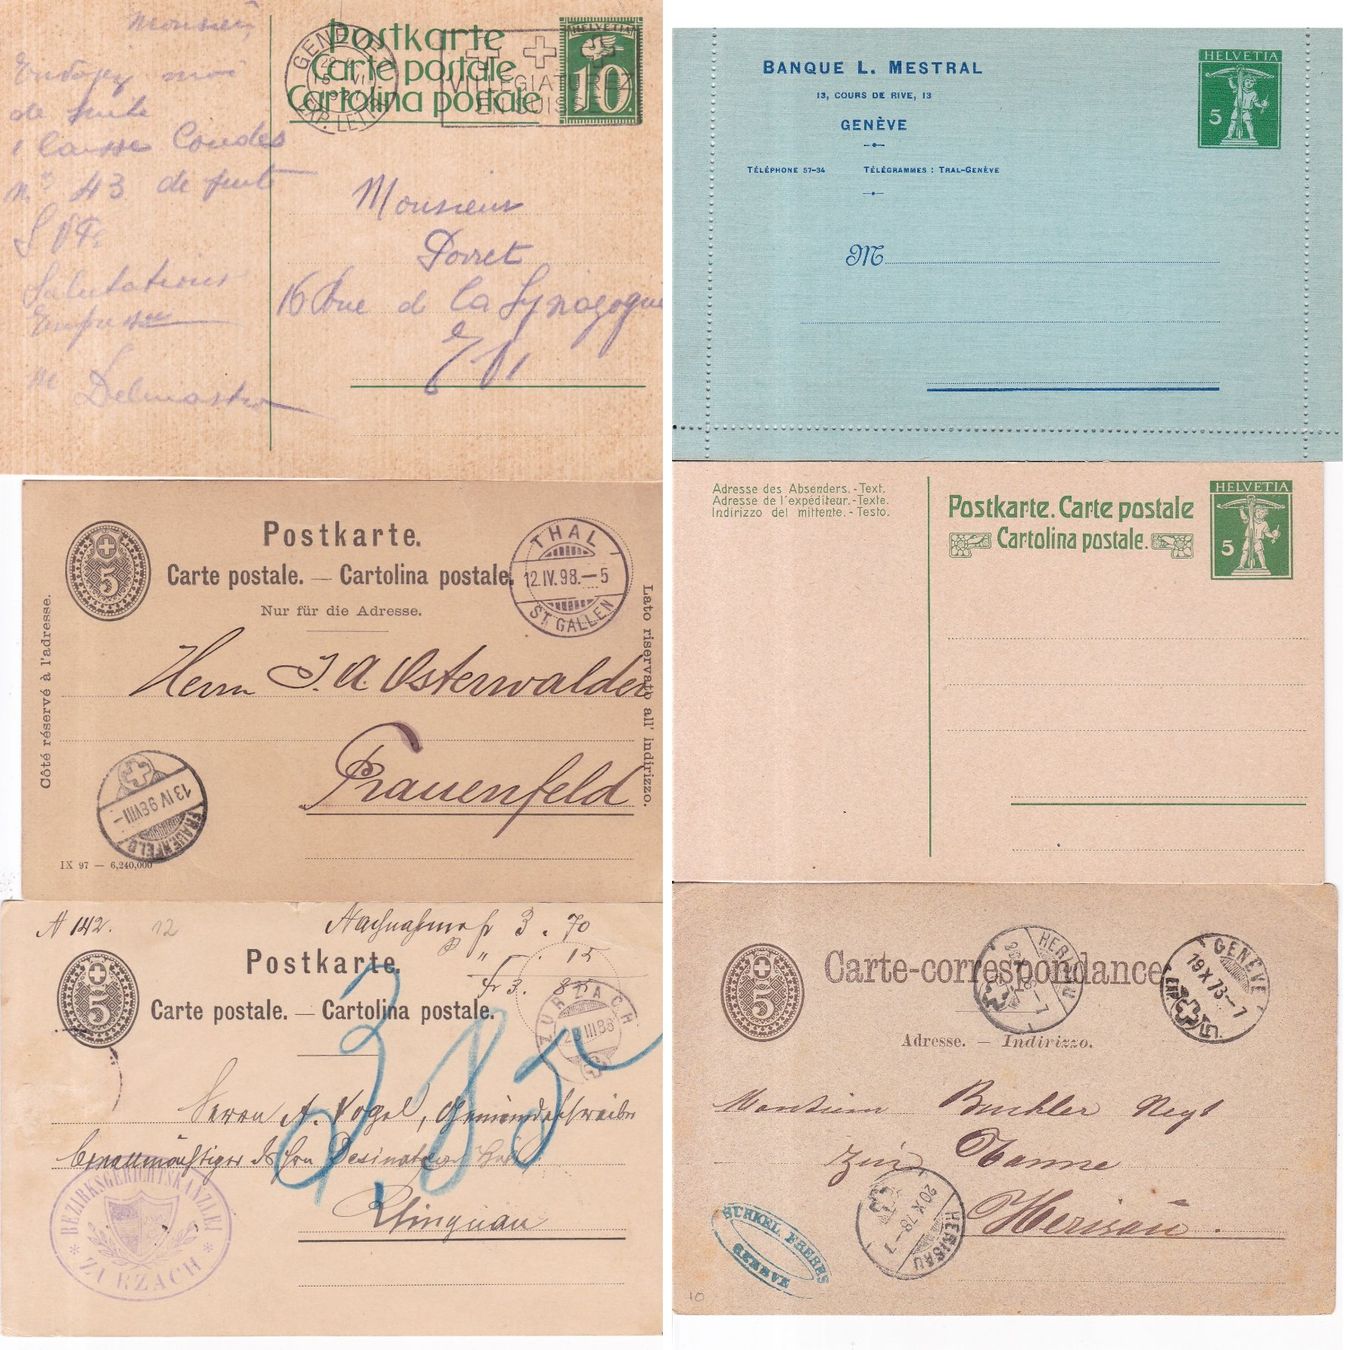 Monsieur,
de suite
1 caisse Coudes
N° 43 de suite
S V P.
Salutations
Delmastro
Postkarte
Carte postale
Cartolina postale
GENÈVE
EXP. LETT
VILLEGIATUREZ
EN SUISSE
HELVETIA
10
Monsieur
Dorret
16 Rue de la Synagogue
E/V
BANQUE L. MESTRAL
13, COURS DE RIVE, 13
GENÈVE
TÉLÉPHONE 57-34 TÉLÉGRAMMES : TRAL-GENÈVE
M
HELVETIA
5
5
Postkarte.
Carte postale. — Cartolina postale.
Nur für die Adresse.
THAL
12.IV.98.—5
ST. GALLEN
Côté réservé à l'adresse.
Lato riservato all' indirizzo.
Herrn J. A. Osterwalder
Frauenfeld
13 IV 98 VIII—
FRAUENFELD
IX 97 — 6,240,000
Adresse des Absenders. - Text.
Adresse de l'expéditeur. - Texte.
Indirizzo del mittente. - Testo.
Postkarte. Carte postale
Cartolina postale.
HELVETIA
5
N 142. 12
Nachnahme fr 3.70
" .15
Fr 3. 85
5
Postkarte.
Carte postale. — Cartolina postale.
ZURZACH
3,85
Herrn A. Vogel, Gemeindeschreiber
Klingnau
BEZIRKSGERICHTSKANZLEI
ZURZACH
5
Carte-correspondance
Adresse. — Indirizzo.
HERISAU
GENÈVE
19 X 78—7
EXP. LET.
Monsieur Buchler Negt
zur Tanne
Herisau.
20 X 78—7
HERISAU
SÜRKEL FRERES
GENEVE
10